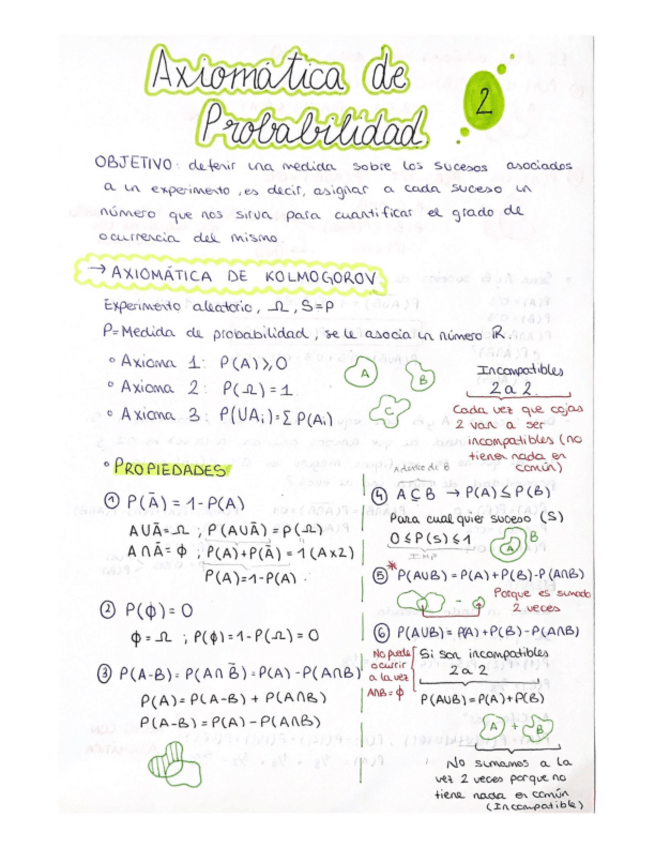 Axiomática de
Probabilidad
2
OBJETIVO: definir una medida sobre los sucesos asociados
a un experimento, es decir, asignar a cada suceso un
número que nos sirva para cuantificar el grado de
ocurrencia del mismo
→ AXIOMÁTICA DE KOLMOGOROV
Experimento aleatorio, Ω, S=P
P=Medida de probabilidad, se le asocia un número ℝ.
∘ Axioma 1: P(A)⩾0
∘ Axioma 2: P(Ω)=1
∘ Axioma 3: P(UAi)=Σ P(Ai)
A
B
C
Incompatibles
2 a 2.
Cada vez que cojas
2 van a ser
incompatibles (no
tienen nada en
común)
∘ PROPIEDADES
① P(Ā) = 1-P(A)
AUĀ=Ω ; P(AUĀ)=P(Ω)
A∩Ā=ϕ ; P(A)+P(Ā)=1 (Ax2)
P(A)=1-P(A)
② P(ϕ)=0
ϕ=Ω ; P(ϕ)=1-P(Ω)=0
③ P(A-B)=P(A∩B̄)=P(A)-P(A∩B)
P(A)=P(A-B)+P(A∩B)
P(A-B)=P(A)-P(A∩B)
A dentro de B
④ A⊆B → P(A)≤P(B)
Para cualquier suceso (S)
0≤P(S)≤1
IMP
A
B
⑤* P(AUB)=P(A)+P(B)-P(A∩B)
-
Porque es sumado
2 veces
⑥ P(AUB)=P(A)+P(B)-P(A∩B)
No puede
ocurrir
a la vez
A∩B=ϕ
Si son incompatibles
2 a 2
P(AUB)=P(A)+P(B)
A + B
No sumamos a la
vez 2 veces porque no
tiene nada en común
(Incompatible)